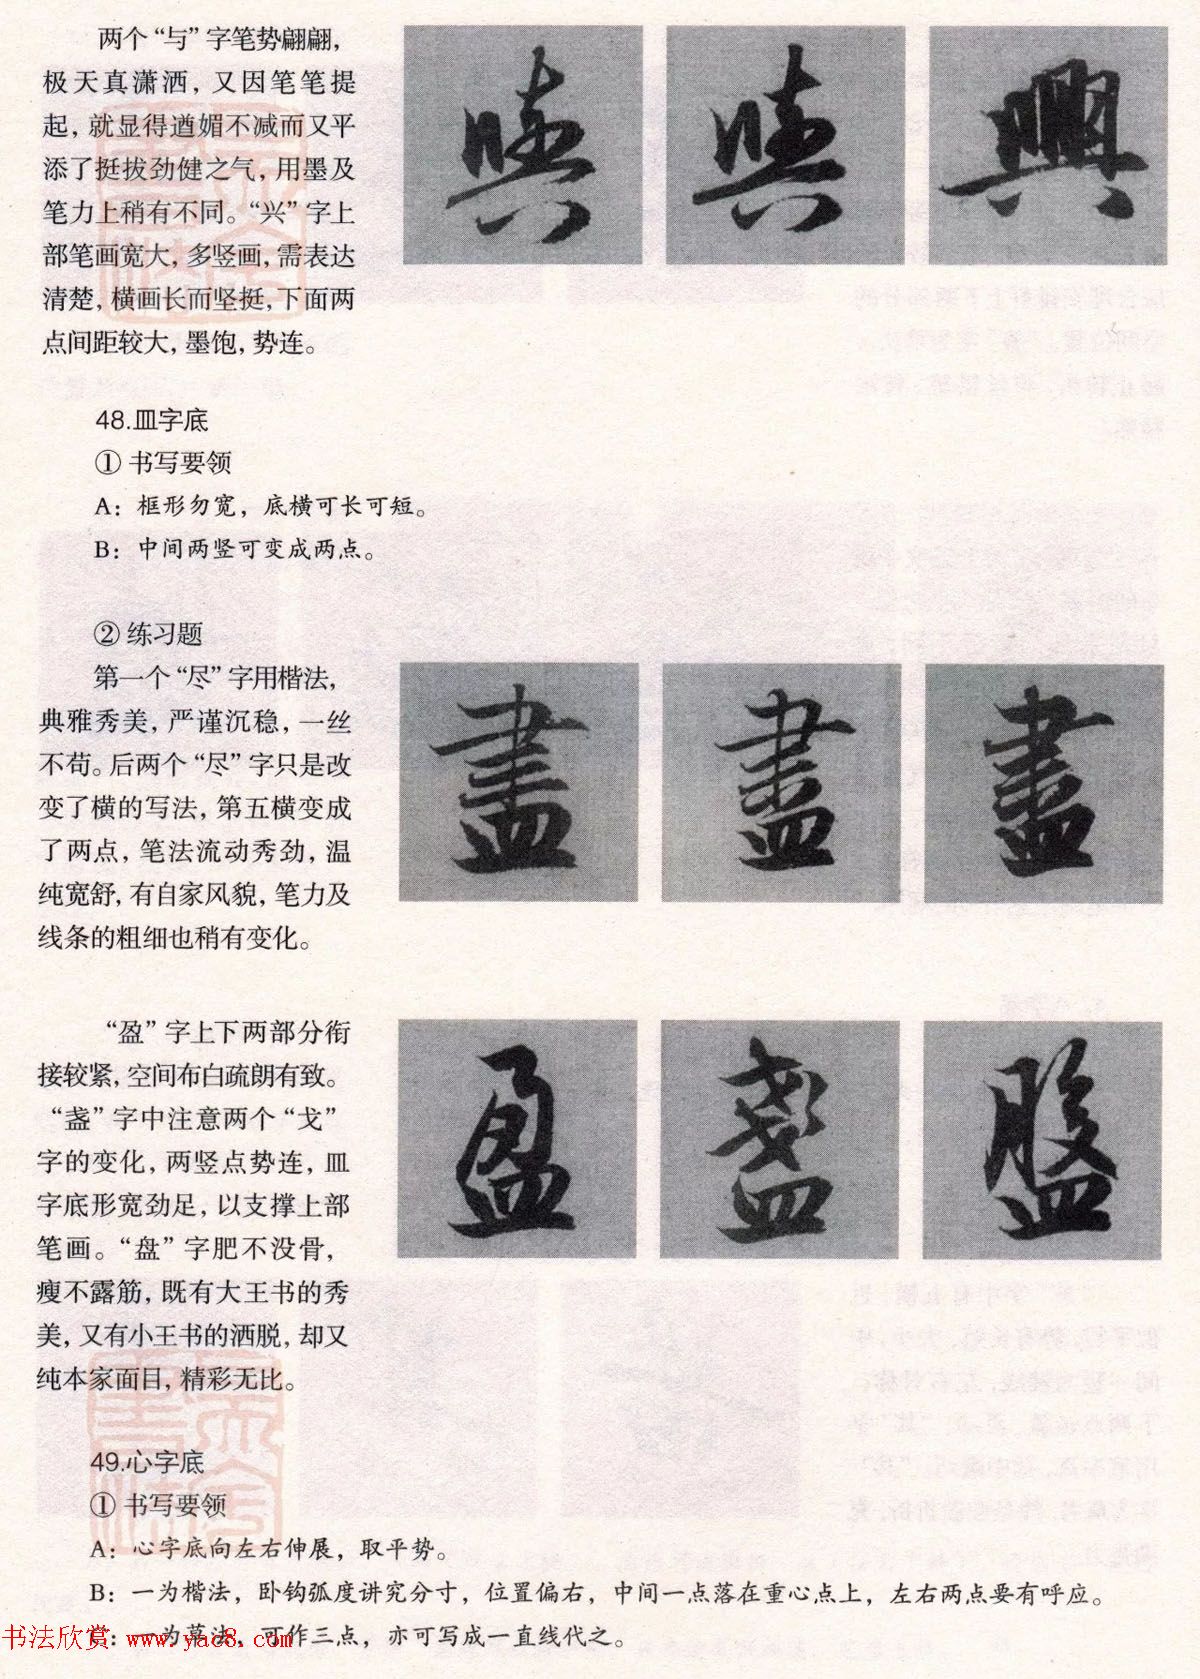 两个“与”字笔势翩翩，
极天真潇洒，又因笔笔提
起，就显得遒媚不减而又平
添了挺拔劲健之气，用墨及
笔力上稍有不同。“兴”字上
部笔画宽大，多竖画，需表达
清楚，横画长而坚挺，下面两
点间距较大，墨饱，势连。
與 與 興
48.皿字底
① 书写要领
A：框形勿宽，底横可长可短。
B：中间两竖可变成两点。
② 练习题
第一个“尽”字用楷法，
典雅秀美，严谨沉稳，一丝
不苟。后两个“尽”字只是改
变了横的写法，第五横变成
了两点，笔法流动秀劲，温
纯宽舒，有自家风貌，笔力及
线条的粗细也稍有变化。
盡 盡 盡
“盈”字上下两部分衔
接较紧，空间布白疏朗有致。
“盏”字中注意两个“戈”
字的变化，两竖点势连，皿
字底形宽劲足，以支撑上部
笔画。“盘”字肥不没骨，
瘦不露筋，既有大王书的秀
美，又有小王书的洒脱，却又
纯本家面目，精彩无比。
盈 盞 盤
49.心字底
① 书写要领
A：心字底向左右伸展，取平势。
B：一为楷法，卧钩弧度讲究分寸，位置偏右，中间一点落在重心点上，左右两点要有呼应。
C：一为草法，可作三点，亦可写成一直线代之。
书法欣赏 www.yac8.com